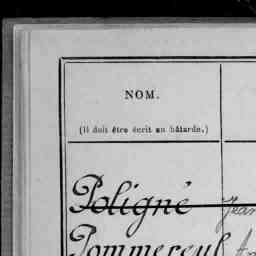 NOM.
(Il doit être écrit en bâtarde.)
Poligné Jean
Pommereul